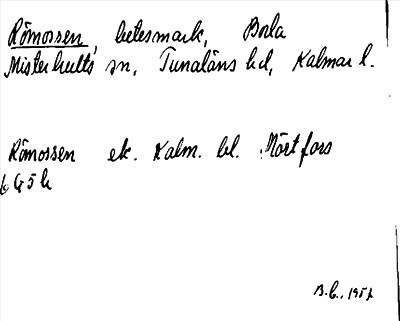 Römossen, betesmark, Borla
Misterhults sn, Tunaläns hd, Kalmar l.
Römossen ek. Kalm. bl. Mörtfors
6G5h
B.E., 1957